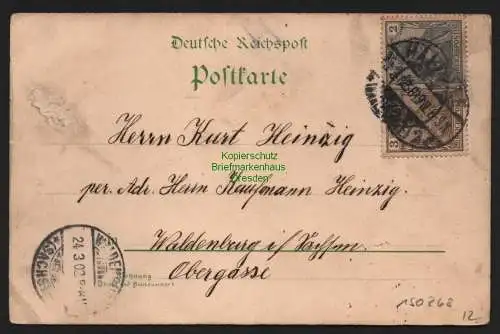 Deutsche Reichspost
Postkarte
2
3
Herrn Kurt Heinzig
Kopierschutz
Briefmarkenhaus
Dresden
per. Adr. Herrn Kaufmann Heinzig.
Waldenburg i/Sachsen
Obergasse
24 3 02
(SACHSEN)
Wohnung
150262
12